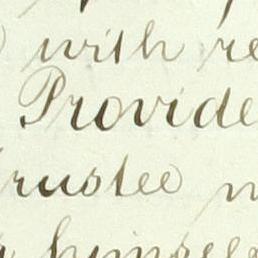 with re
Provide
rustee
himself